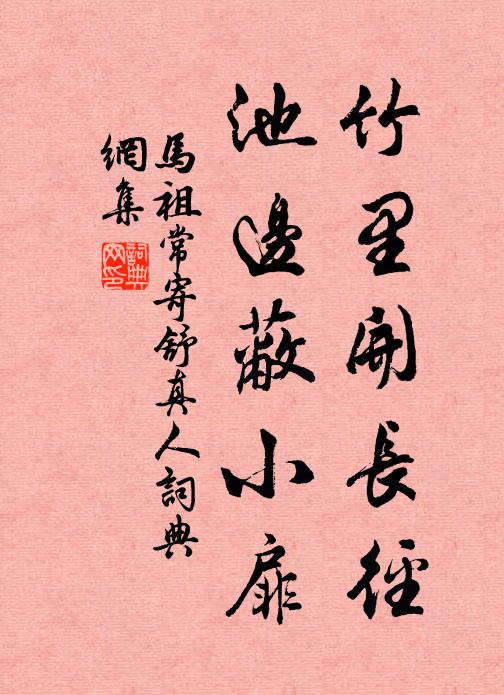 竹里開長徑
池邊蔽小扉
馬祖常寄舒真人詞典
網集
詞典网印